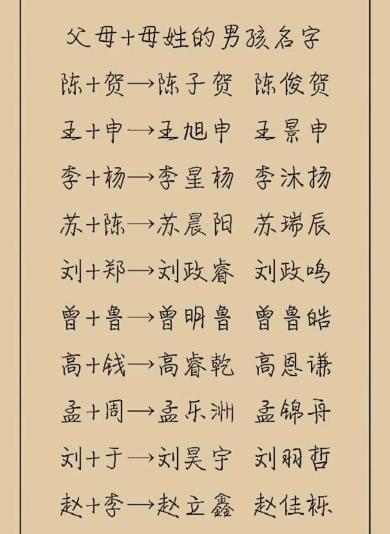 父母+母姓的男孩名字
陈+贺→陈子贺 陈俊贺
王+申→王旭申 王景申
李+杨→李星杨 李沐扬
苏+陈→苏晨阳 苏瑞辰
刘+郑→刘政睿 刘政鸣
曾+鲁→曾明鲁 曾鲁皓
高+钱→高睿乾 高恩谦
孟+周→孟乐洲 孟锦舟
刘+于→刘昊宇 刘羽哲
赵+李→赵立鑫 赵佳栎